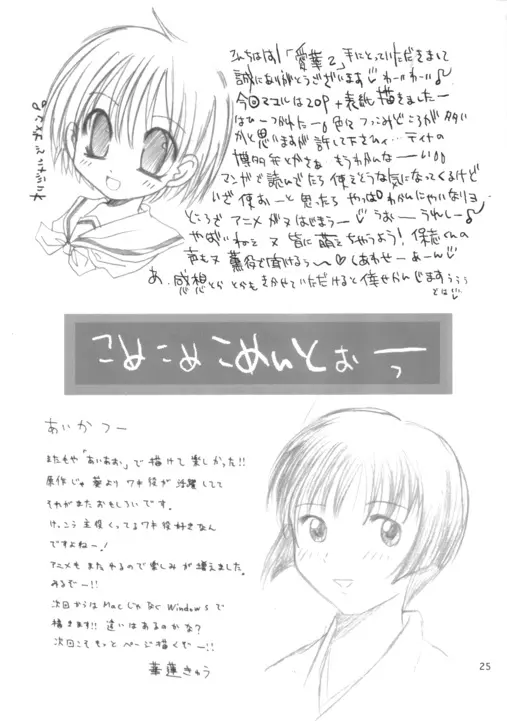 こんちは!「愛華2」手にとっていただきまして
誠にありがとうございます わーいわーい♪
今回マコルは20P+表紙描きましたー
はひーつかれたー 色々つっこみどころが多い
かと思いますが許して下さひ…ティナの
博多弁とかさぁ もうわかんなーい
マンガで読んでたら使えそうな気になってくるけど
いざ使おーと思ったらやっぱわかんにゃいなりョ
ところでアニメが又はじまるー うおーうれしー♪
やばいねェ 又皆に萌えちゃうよう!保志くんの
声も又薫役で聞けるぅ〜♡しあわせーあーん
あ、感想とかとかもきかせていただけると倖せかんじますぅぅぅ
とは
こめこめこめんとおーっ
あいかつー
またもや「あいあお」で描けて楽しかった!!
原作じゃ葵よりワキ役が活躍してて
それがまたおもしろいです。
けっこう主役くってるワキ役好きなん
ですよねー!
アニメもまたやるので楽しみが増えました。
みるぞー!!
次回からはMacじゃなくWindowsで
描きます!!違いはあるのかな?
次回こそもっとページ描くぞー!!
華蓮きゅう
25